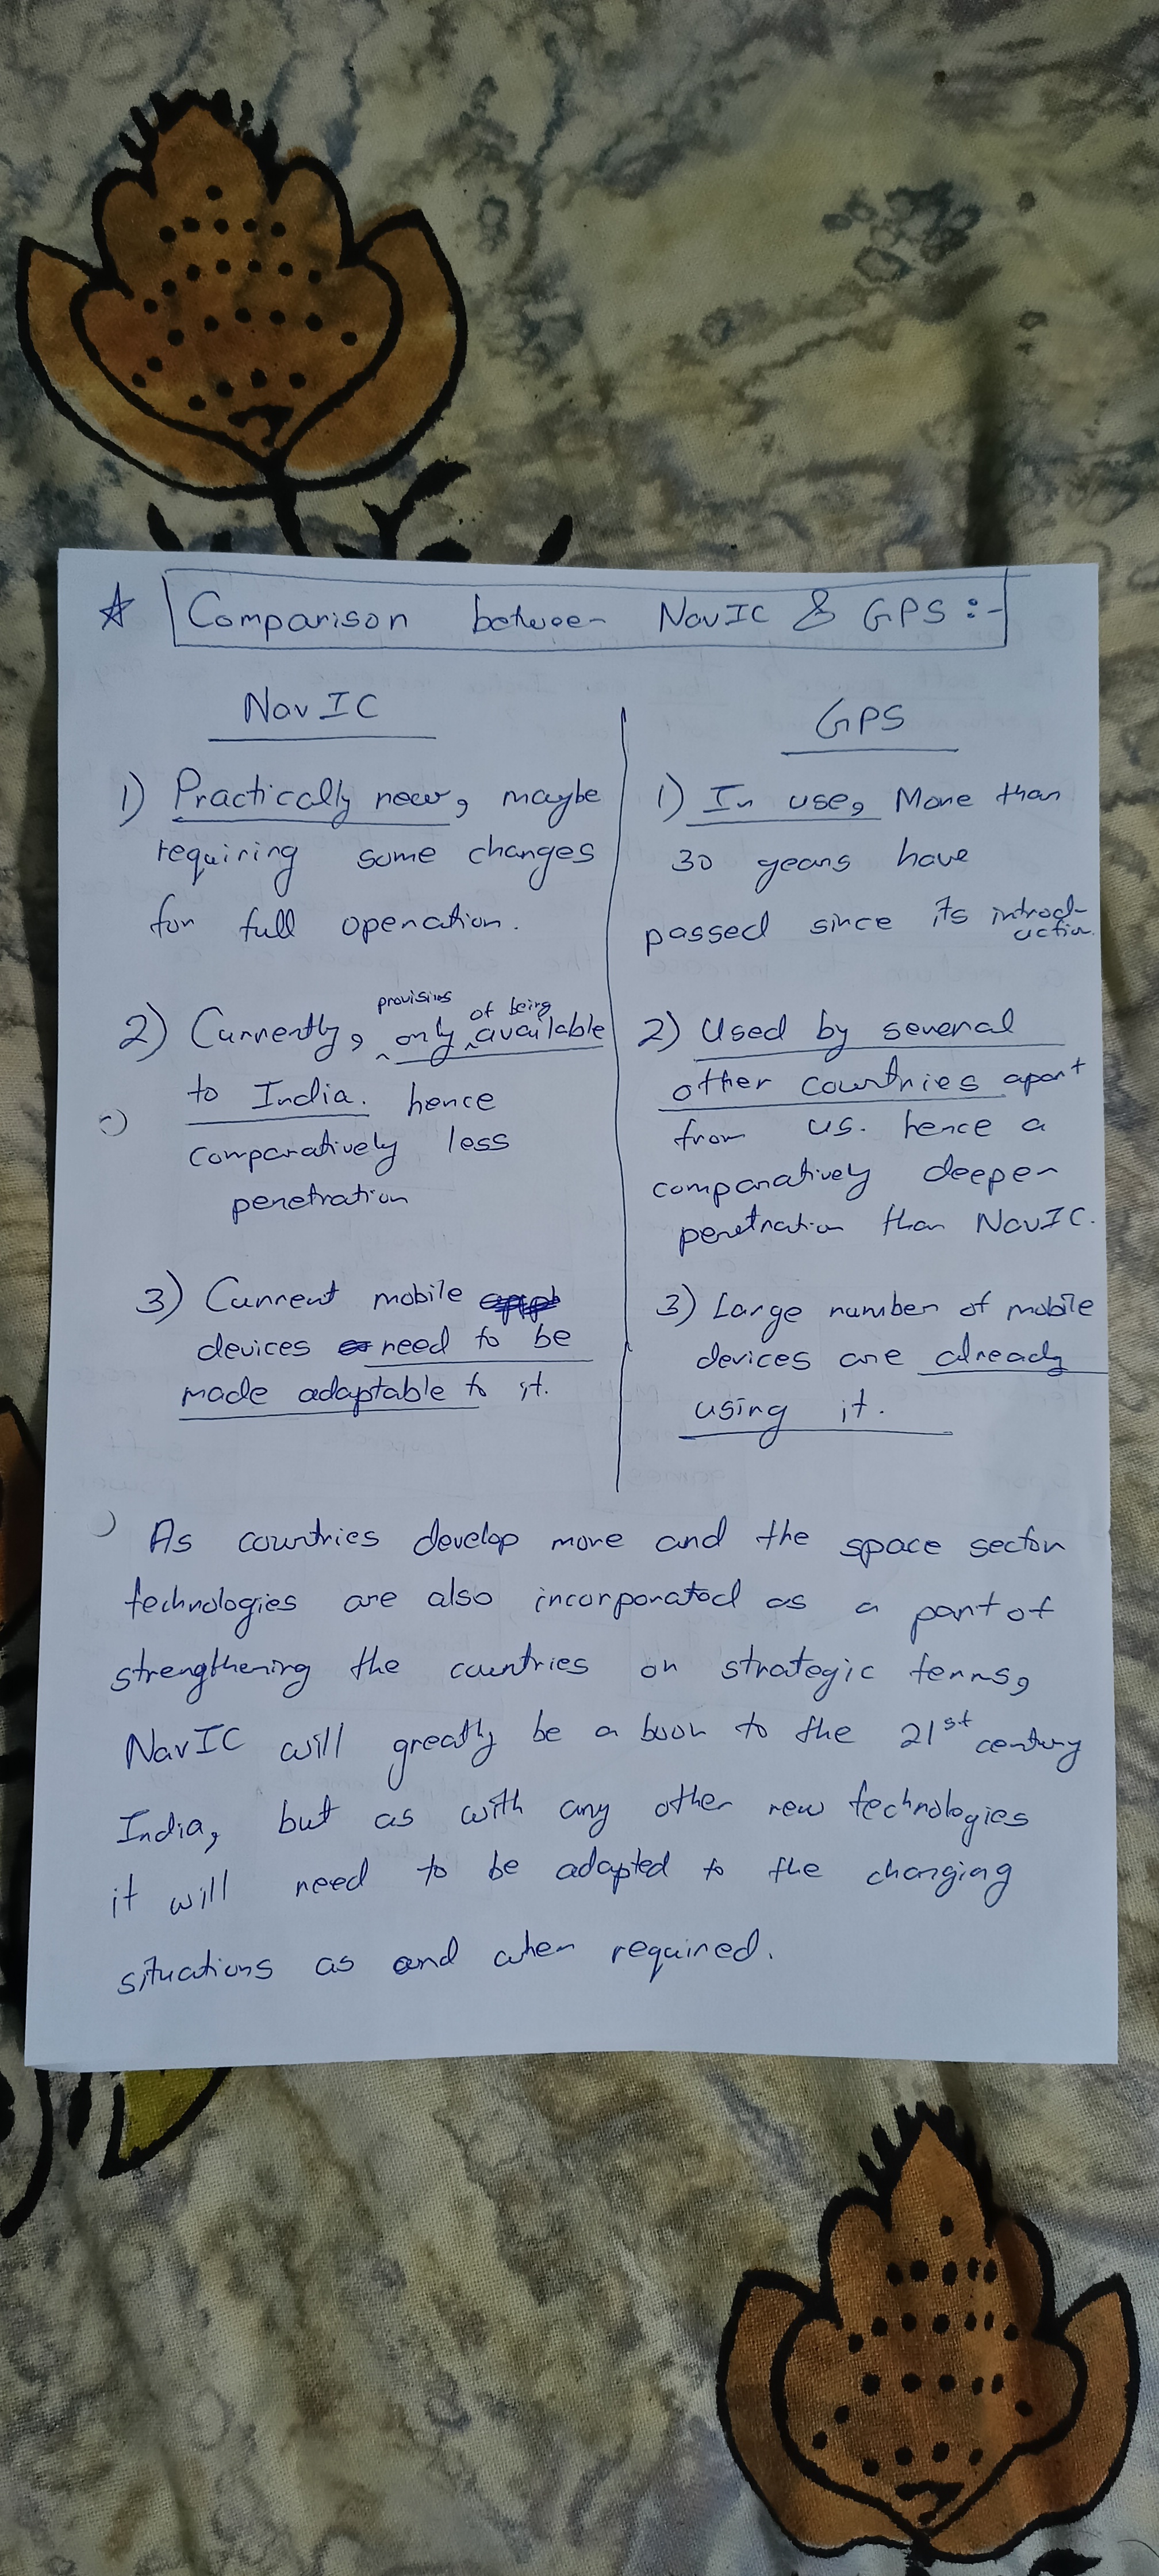 ☆ Comparison between NavIC & GPS :-
NavIC
1) Practically new, maybe
requiring some changes
for full operation.
2) Currently, provisions only of being available
to India. hence
comparatively less
penetration
3) Current mobile
devices need to be
made adaptable to it.
GPS
1) In use, More than
30 years have
passed since its introd-
uction.
2) Used by several
other countries apart
from US. hence a
comparatively deeper
penetration than NavIC.
3) Large number of mobile
devices are already
using it.
As countries develop more and the space sector
technologies are also incorporated as a part of
strengthening the countries on strategic terms,
NavIC will greatly be a boon to the 21st century
India, but as with any other new technologies
it will need to be adapted to the changing
situations as and when required.